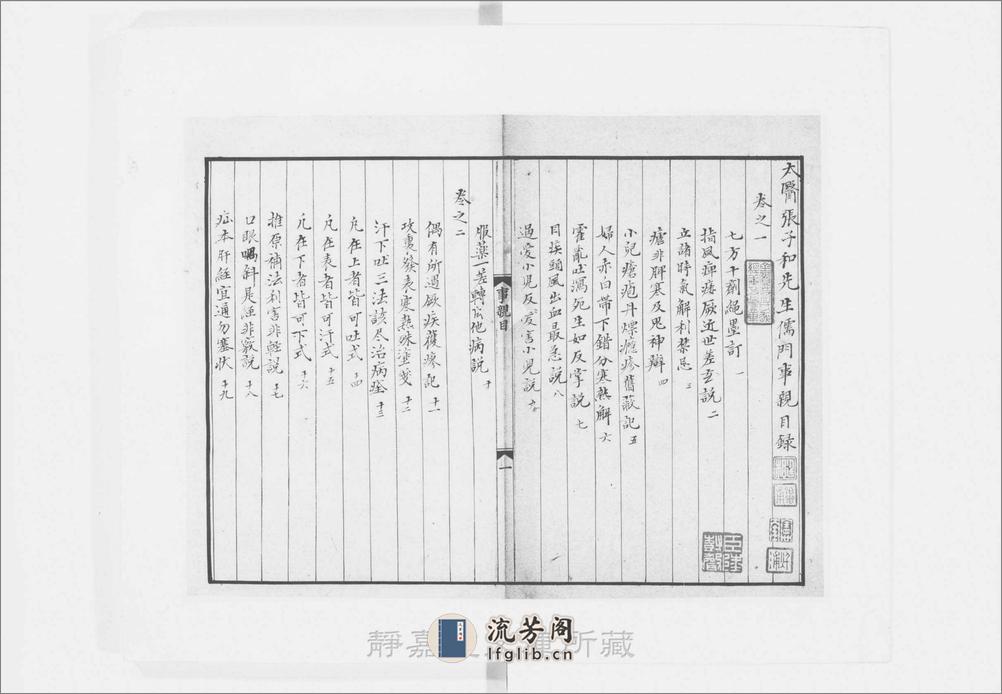 太醫張子和先生儒門事親目錄
卷之一
七方十劑繩墨訂 一
指風痺痿厥近世差玄說 二
立諸時氣解利禁忌 三
瘧非脾寒及鬼神辯 四
小兒瘡疱丹熛癮疹舊蔽記 五
婦人赤白帶下錯分寒熱解 六
霍亂吐瀉死生如反掌說 七
目疾頭風出血最急說 八
過愛小兒反害小兒說 九
服藥一差轉成他病說 十
卷之二
偶有所遇厥疾獲瘳記 十一
攻裏發表寒熱殊塗箋 十二
汗下吐三法該尽治病詮 十三
凢在上者皆可吐式 十四
凢在表者皆可汗式 十五
凢在下者皆可下式 十六
推原補法利害非輕說 十七
口眼喎斜是經非竅說 十八
疝本肝經宜通勿塞狀 十九
事親目
一
靜嘉 所藏
流芳阁
lfglib.cn